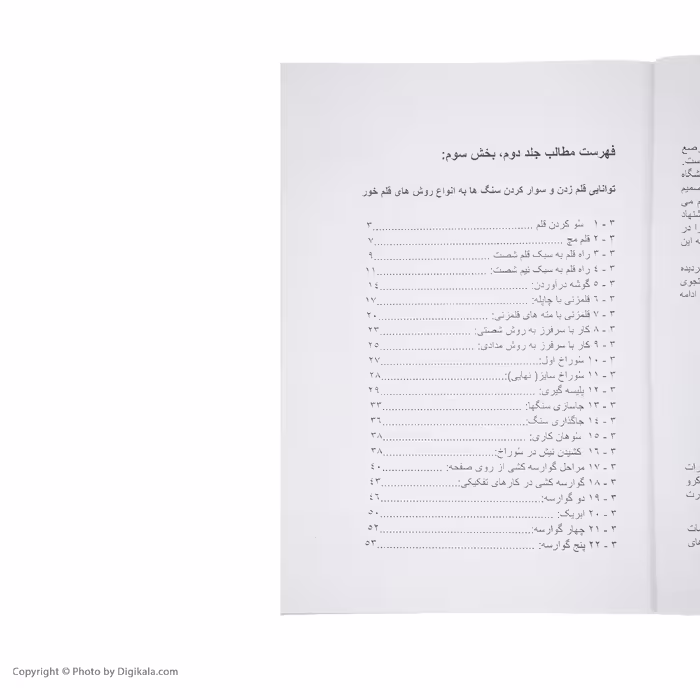 فهرست مطالب جلد دوم، بخش سوم:
توانایی قلم زدن و سوار کردن سنگ ها به انواع روش های قلم خور
۳ - ۱ سُو کردن قلم ................................................ ۳
۳ - ۲ قلم مچ ................................................ ۷
۳ - ۳ راه قلم به سبک قلم شصت ................................................ ۹
۳ - ۴ راه قلم به سبک نیم شصت: ................................................ ۱۱
۳ - ۵ گوشه درآوردن: ................................................ ۱۴
۳ - ۶ قلمزنی با چاپله: ................................................ ۱۷
۳ - ۷ قلمزنی با مته های قلمزنی: ................................................ ۲۰
۳ - ۸ کار با سرفرز به روش شصتی: ................................................ ۲۳
۳ - ۹ کار با سرفرز به روش مدادی: ................................................ ۲۵
۳ - ۱۰ سُوراخ اول: ................................................ ۲۷
۳ - ۱۱ سُوراخ سایز( نهایی): ................................................ ۲۸
۳ - ۱۲ پلیسه گیری: ................................................ ۲۹
۳ - ۱۳ جاسازی سنگها: ................................................ ۳۳
۳ - ۱۴ جاگذاری سنگ: ................................................ ۳۶
۳ - ۱۵ سُوهان کاری: ................................................ ۳۸
۳ - ۱۶ کشیدن نیش در سُوراخ: ................................................ ۳۸
۳ - ۱۷ مراحل گوارسه کشی از روی صفحه: ................................................ ۴۰
۳ - ۱۸ گوارسه کشی در کارهای تفکیکی: ................................................ ۴۳
۳ - ۱۹ دو گوارسه: ................................................ ۴۶
۳ - ۲۰ ابریک: ................................................ ۵۰
۳ - ۲۱ چهار گوارسه: ................................................ ۵۲
۳ - ۲۲ پنج گوارسه: ................................................ ۵۳
Copyright © Photo by Digikala.com